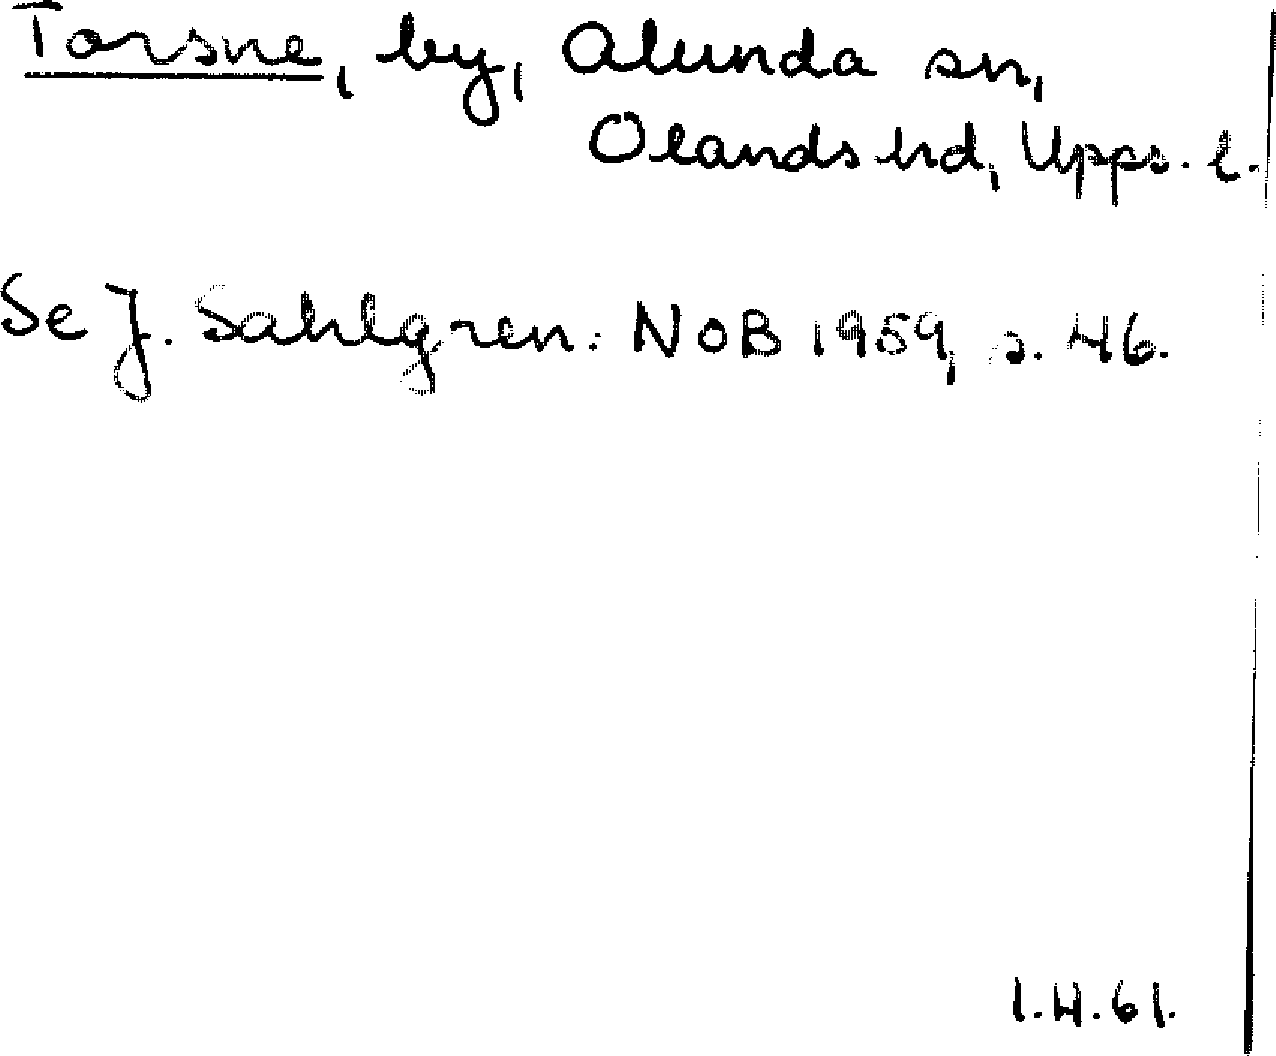 Torsne, by, Alunda sn,
Olands hd, Upps. l.
Se J. Sahlgren: NoB 1959, s. 46.
1.4.61.